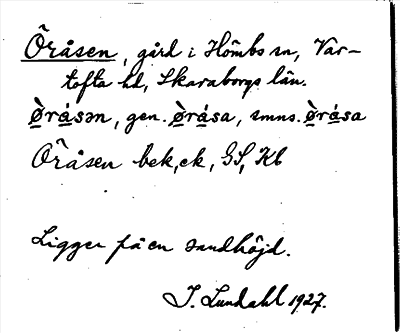 Öråsen, gård i Hömbs sn, Var-
tofta hd, Skaraborgs län.
ø̀råsən, gen. ø̀råsa, smns. ø̀råsa
Öråsen bek, ek, GS, Kb
Ligger på en sandhöjd.
I. Lundahl 1927.